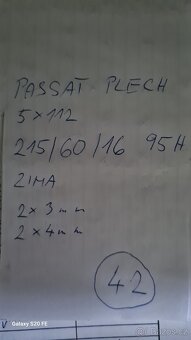 PASSAT PLECH
5x112
215/60/16 95H
ZIMA
2x3mm
2x4mm
42
Galaxy S20 FE